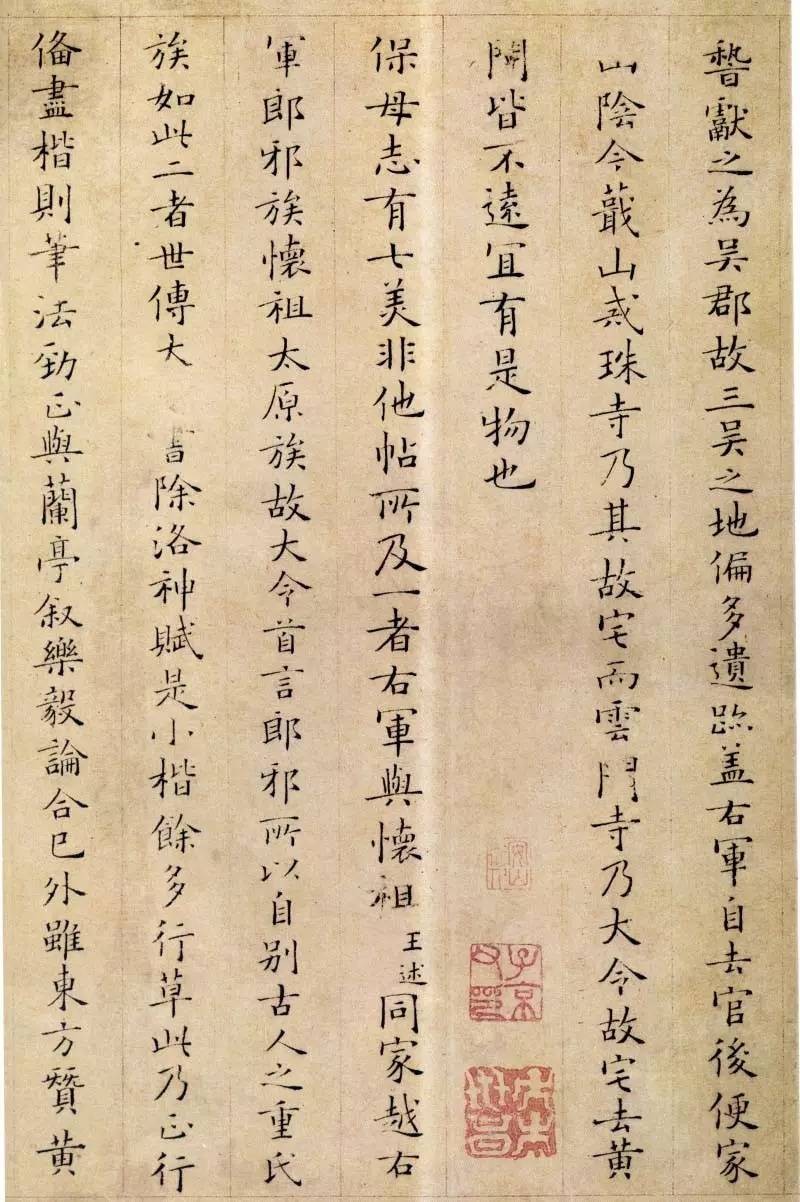 誓獻之為吳郡故三吳之地偏多遺跡盖右軍自去官後便家
山陰今蕺山戒珠寺乃其故宅而雲門寺乃大令故宅去黄
閍皆不遠宜有是物也
保母志有七美非他帖所及一者右軍與懷祖王述同家越右
軍郎邪族懷祖太原族故大令首言郎邪所以自别古人之重氏
族如此二者世傳大 書除洛神賦是小楷餘多行草此乃正行
俻盡楷則筆法勁正與蘭亭叙樂毅論合已外雖東方贊黄
子京